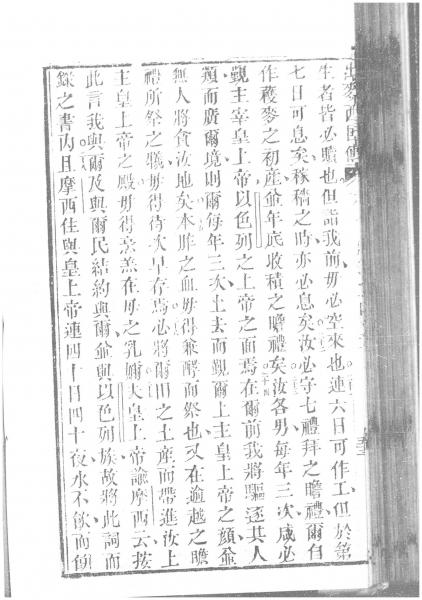 出麥西國傳
生者皆必贖也但詣我前毋必空來也連六日可作工但於第
七日可息矣稼穡之時亦必息矣汝必守七禮拜之瞻禮爾自
作穫麥之初產並年底收積之瞻禮矣汝各男每年三次咸必
覲主宰皇上帝以色列之上帝之面焉在爾前我將驅逐其人
類而廣爾境則爾每年三次上去而覲爾上主皇上帝之顏並
無人將貪汝地矣本牲之血毋得兼酵而祭也又在逾越之瞻
禮所祭之犧毋得待次早存焉必將爾田之土產而帶進汝上
主皇上帝之殿毋得烹羔在母之乳嬭夫皇上帝諭摩西云按
此言我與爾及與爾民結約與爾並與以色列族故將此詞而
錄之書內且摩西住與皇上帝連四十日四十夜水不飲而